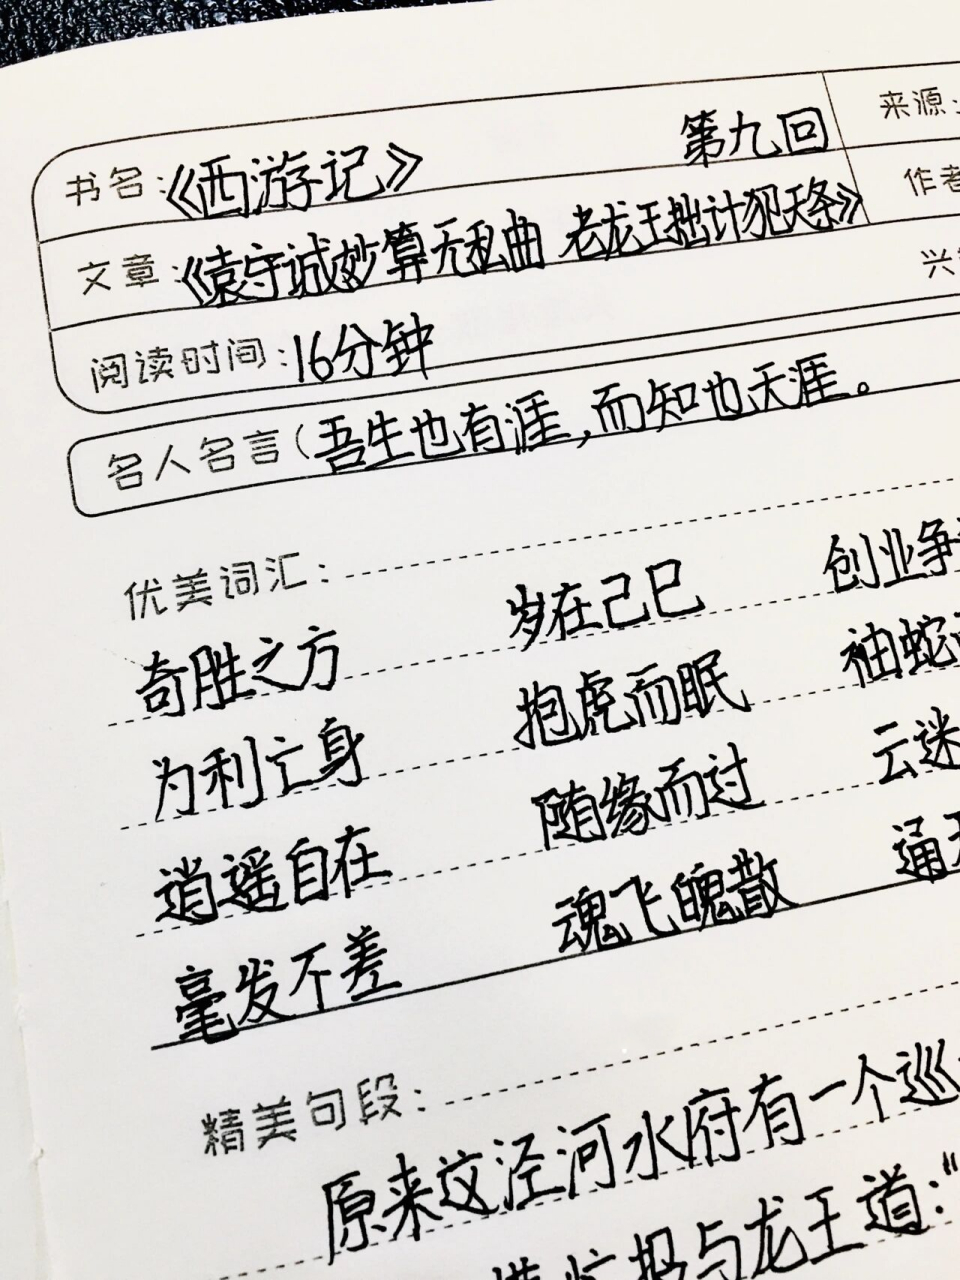 书名:《西游记》 第九回 来源:
文章:《袁守诚妙算无私曲 老龙王拙计犯天条》 作者
阅读时间:16分钟
名人名言(吾生也有涯,而知也天涯。
优美词汇:
奇胜之方 岁在己巳 创业争
为利亡身 抱虎而眠 袖蛇
逍遥自在 随缘而过 云迷
毫发不差 魂飞魄散 通
精美句段:
原来这泾河水府有一个巡
慌忙报与龙王道:“